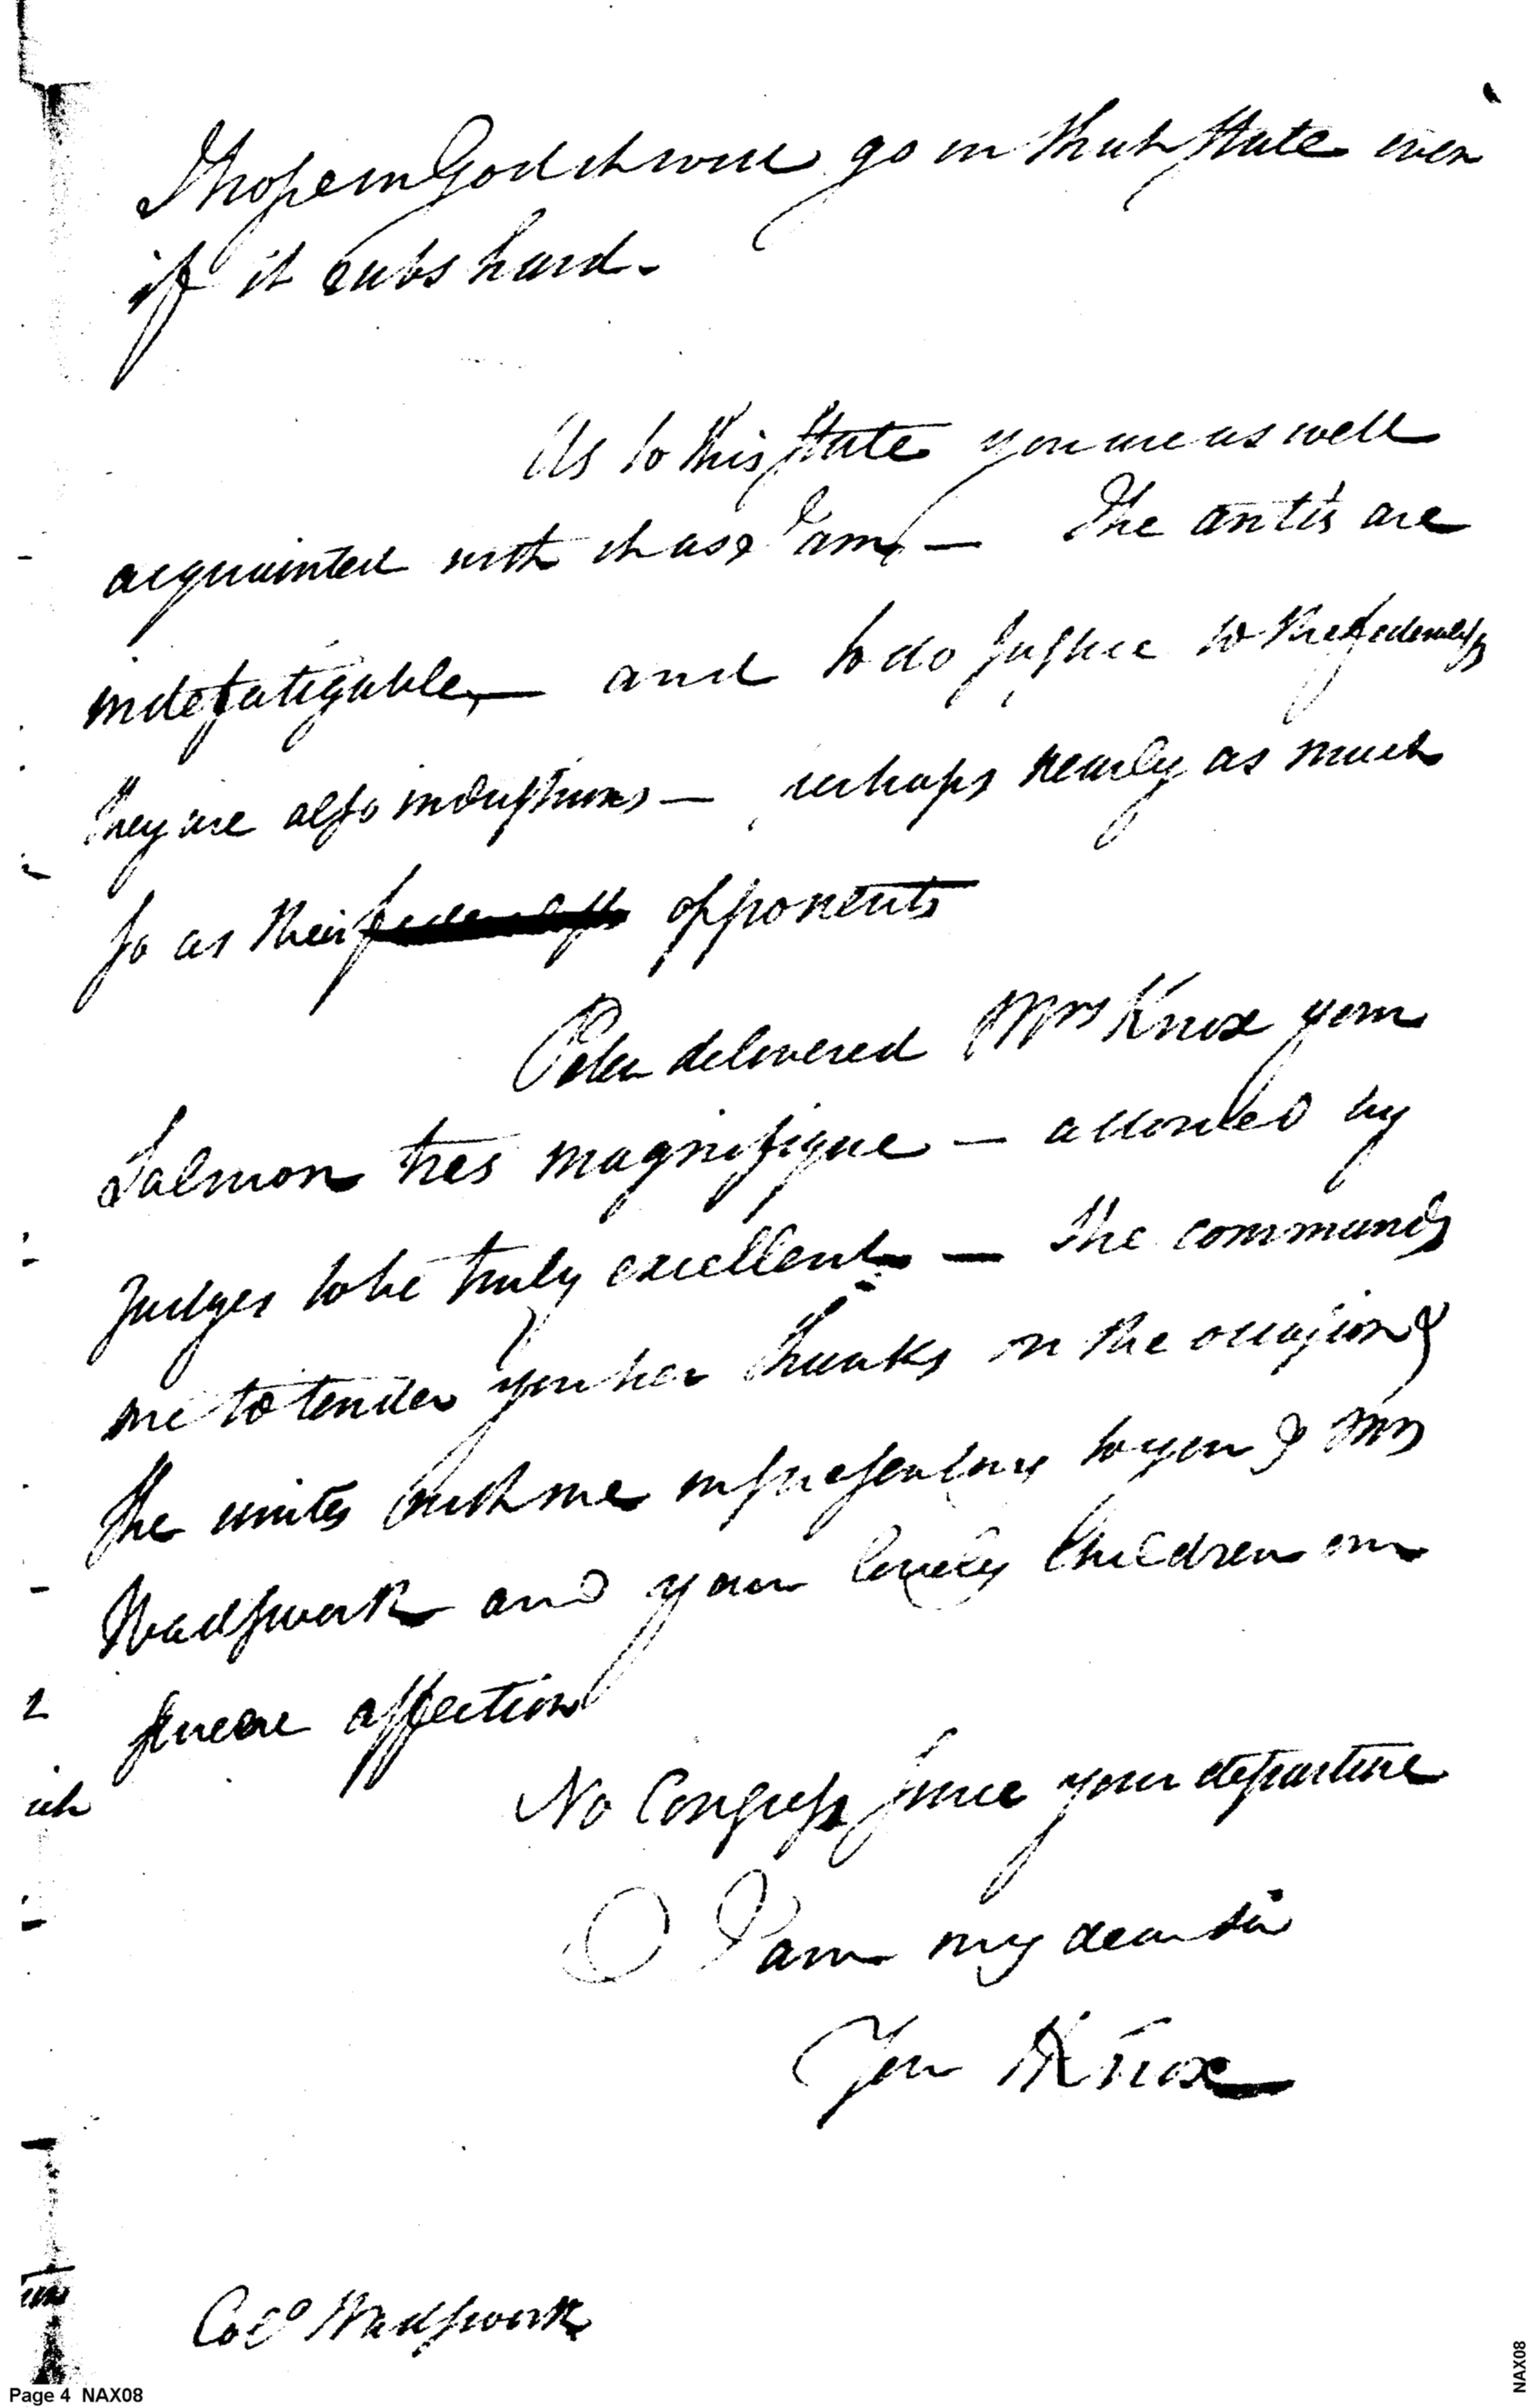 I hope in God it will go in that state even
if it rubs hard.
As to this state you are as well
acquainted with it as I am — The antis are
indefatigable, — and to do justice to the federalists
they are also industrious — perhaps nearly as much
so as their federalists opponents
Peter delivered Mrs Knox your
Salmon tres magnifique — allowed by
Judges to be truly excellent — She commands
me to tender you her thanks on the occasion &
she unites with me in presenting to you & Mrs
Wadsworth and your lovely children our
sincere affection
No Congress since your departure
I am my dear sir
Your HKnox
Colo Wadsworth
Page 4 NAX08
NAX08